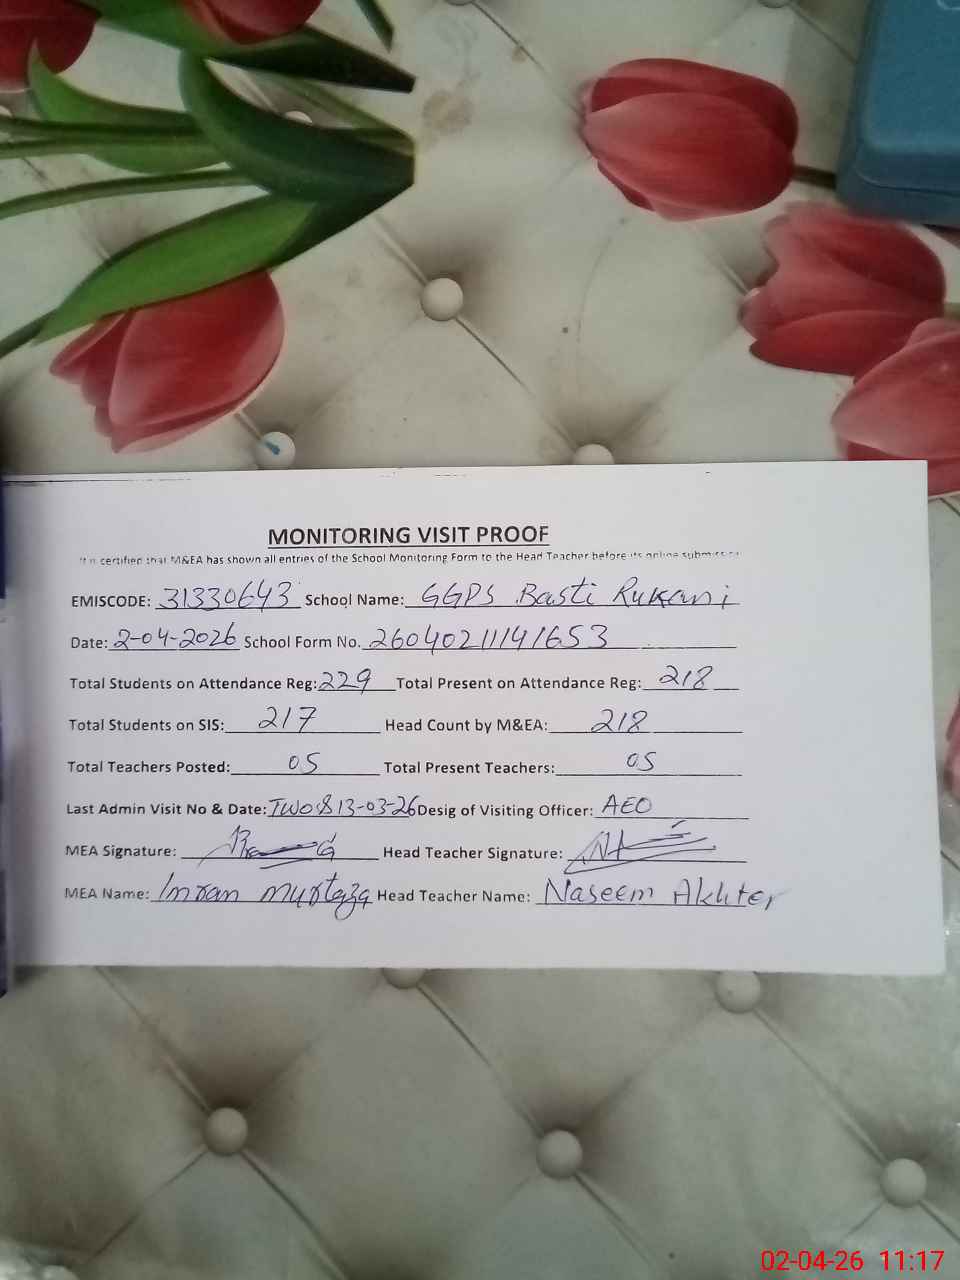 MONITORING VISIT PROOF
It is certified that M&EA has shown all entries of the School Monitoring Form to the Head Teacher before its online submission
EMISCODE: 31330643 School Name: GGPS Basti Rukani
Date: 2-04-2026 School Form No. 26040211141653
Total Students on Attendance Reg: 229 Total Present on Attendance Reg: 218
Total Students on SIS: 217 Head Count by M&EA: 218
Total Teachers Posted: 05 Total Present Teachers: 05
Last Admin Visit No & Date: TWO & 13-03-26 Desig of Visiting Officer: AEO
MEA Signature: Head Teacher Signature:
MEA Name: Imran Murtaza Head Teacher Name: Naseem Akhter
02-04-26 11:17